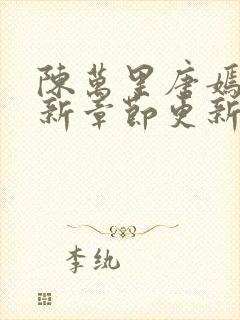 陳萬里唐嫣
新章節更新
李紈